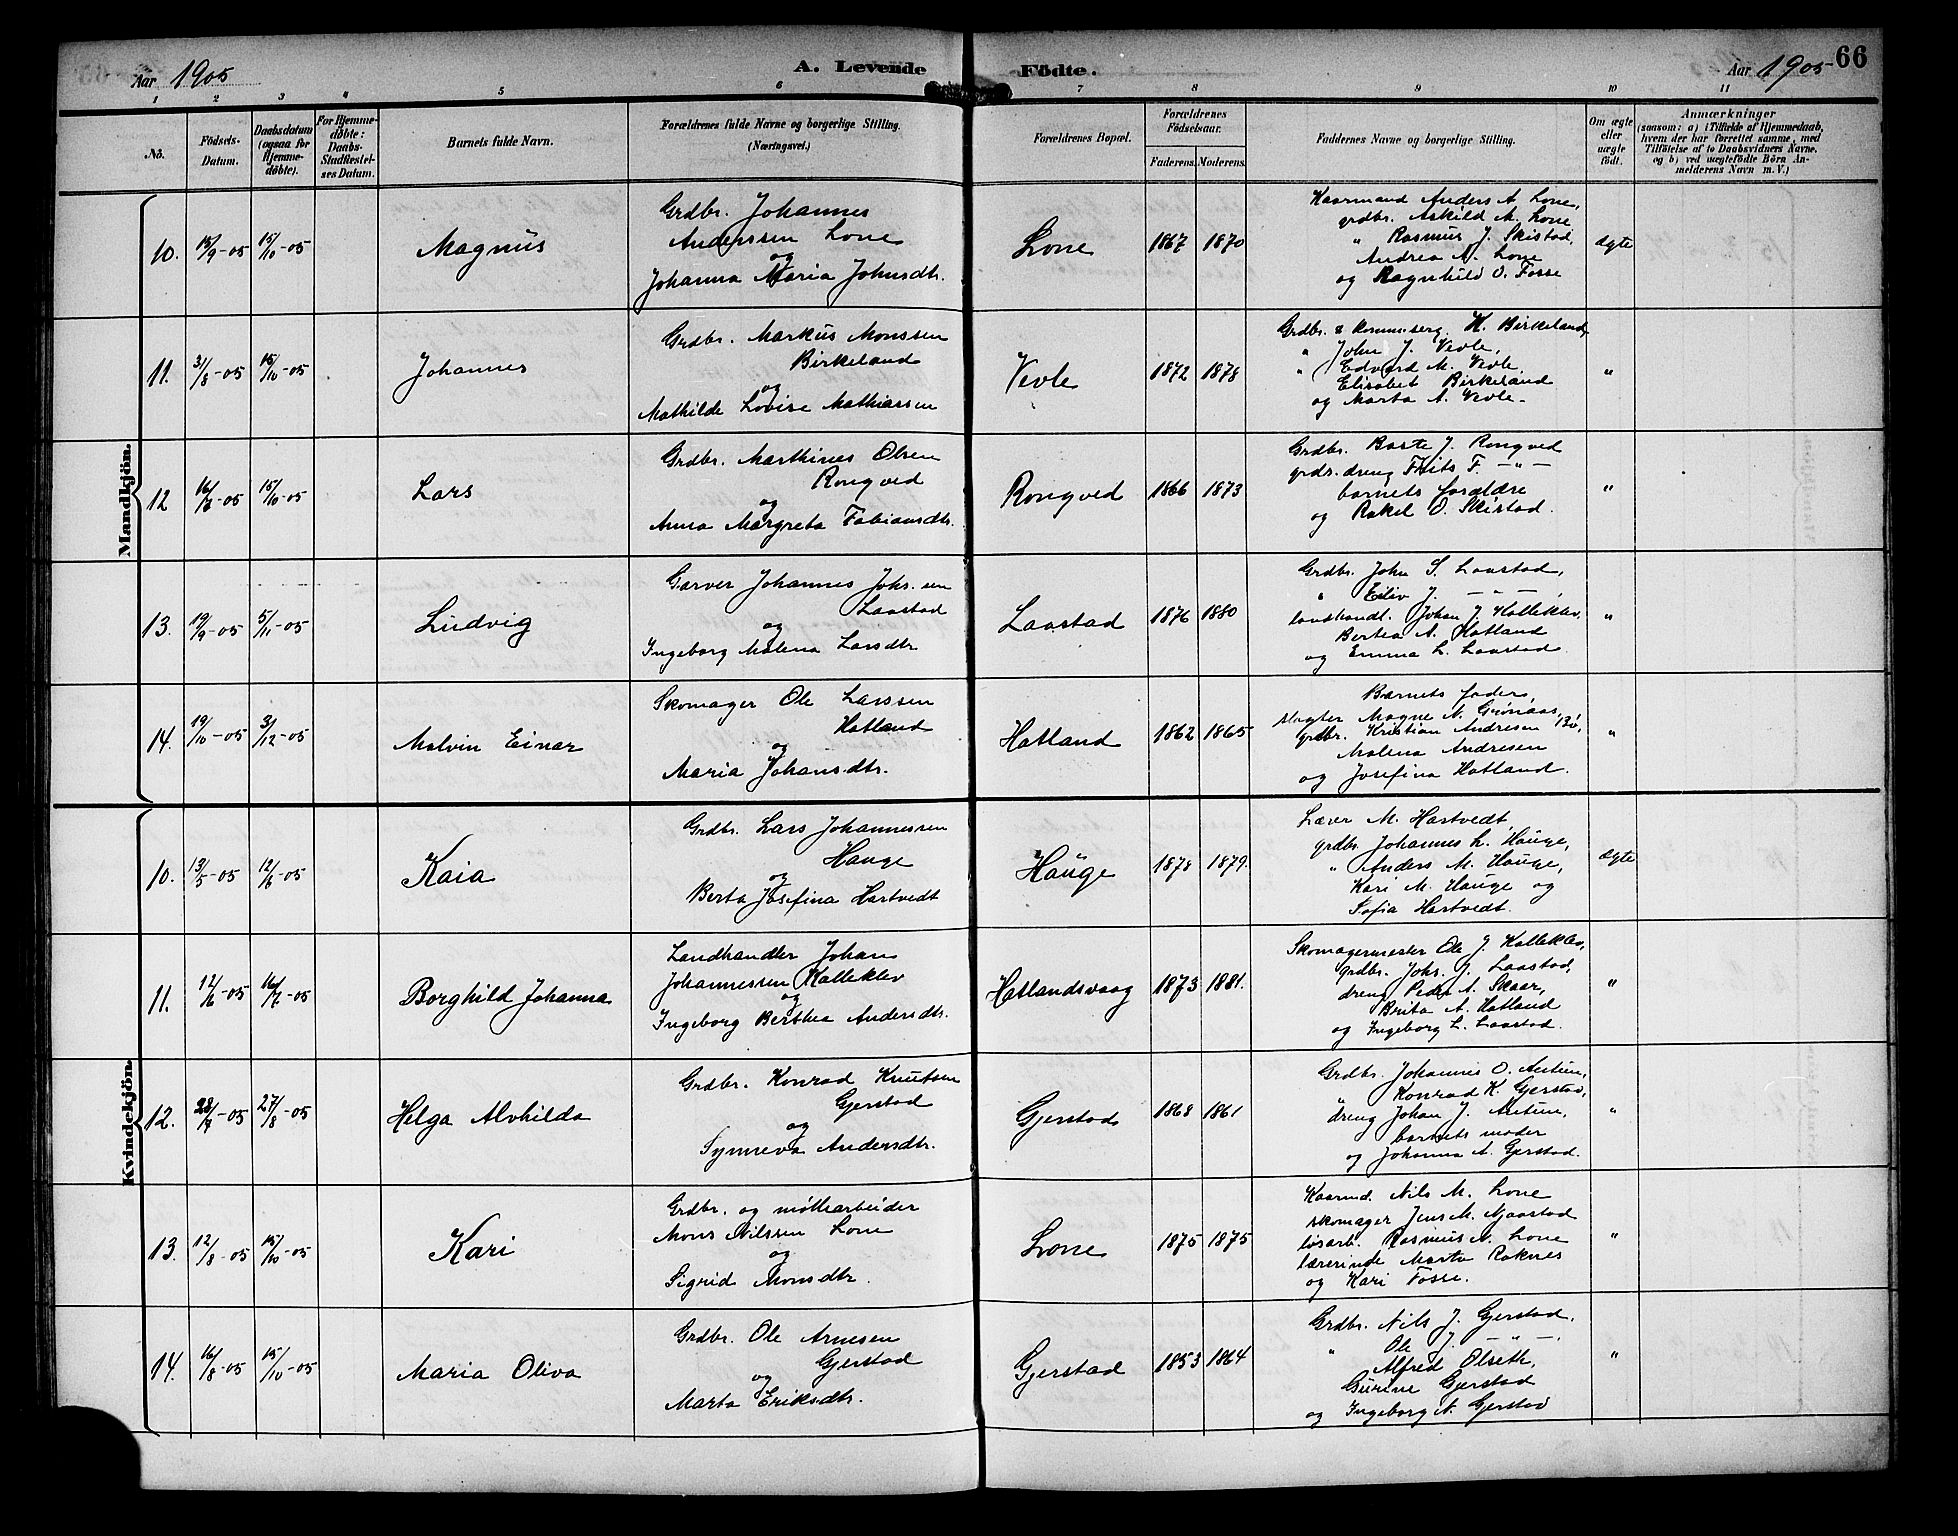 Aar 1905 A. Levende Födte. Aar 1905 66
1 2 3 4 5 6 7 8 9 10 11
No.
Födsels-
Datum.
Daabsdatum
(ogsaa for
Hjemme-
døbte).
For Hjemme-
døbte:
Daabs-
Stadfæstel-
ses Datum.
Barnets fulde Navn.
Forældrenes fulde Navne og borgerlige Stilling.
(Næringsvei.)
Forældrenes Bopæl.
Forældrenes
Födselsaar.
Faderens. Moderens.
Faddernes Navne og borgerlige Stilling.
Om ægte
eller
uægte
født.
Anmærkninger
(saasom: a) i Tilfælde af Hjemmedaab,
hvem der har forrettet samme, med
Tilføielse af to Daabsvidners Navne,
og b) ved uægtefødte Børn An-
melderens Navn m. V.)
Mandkjön.
10. 15/9-05 15/10-05 Magnus
Grdbr. Johannes
Anderssen Lone
og
Johanna Maria Johnsdtr.
Lone 1867 1870
Kaarmand Anders A. Lone,
grdbr. Askild M. Lone
" Rasmus J. Skistad,
Andrea A. Lone
og Ragnhild O. Fosse
ægte
11. 31/8-05 15/10-05 Johannes
Grdbr. Markus Monssen
Birkeland
og
Mathilde Lovise Mathiassen
Vevle 1872 1878
Grdbr. & K. Birkeland
" John J. Vevle,
" Edvard M. Vevle,
Elisabet Birkeland
og Marta A. Vevle.
"
12 15/10-05 Lars
Grdbr. Marthines Olsen
Rongved
og
Anna Margreta Fabiansdtr.
Rongved 1866 1873
Grdbr. Baste J. Rongved
grdr. dreng Frits F. -"-
barnets forældre
og Rakel O. Skistad.
"
13. 19/9-05 5/11-05 Ludvig
Garver Johannes Johs.sen
Laastad
og
Ingeborg Malena Larsdtr
Laastad 1876 1880
Grdbr. John S. Laastad,
" Eiliv J. -"-,
landhandl. Johan J. Halleklev
Bertea A. Hatland
og Emma L. Laastad.
"
14. 19/10-05 3/12-05 Malvin Einar
Skomager Ole Larssen
Hatland
og
Maria Johansdtr.
Hatland 1862 1865
Barnets fader,
slagter Magne N. Grønaas,
grdbr. Kristian Andresen Bö,
Malena Andresen
og Josefina Hatland.
"
Kvindekjön.
10. 13/5-05 12/6-05 Kaia
Grdbr. Lars Johannessen
Hauge
og
Berta Josefina Hartvedt
Hauge 1878 1879.
Lærer M. Hartvedt,
grdbr. Johannes L. Hauge,
" Anders M. Hauge,
Kari M. Hauge og
Sofia Hartvedt.
ægte
11. 12/6-05 16/7-05 Borghild Johanna
Landhandler Johan
Johannessen Halleklev
og
Ingeborg Berthea Andersdtr.
Hatlandsvaag 1873 1881.
Skomagermester Ole J. Halleklev,
grdbr. Johs. J. Laastad,
dreng Peder A. Skaar,
Brita A. Hatland
og Ingeborg L. Laastad.
"
12. 28/7-05 27/8-05 Helga Alvhilda
Grdbr. Konrad Knutsen
Gjerstad
og
Synneva Andersdtr.
Gjerstad 1868 1861
Grdbr. Johannes O. Austun,
" Konrad K. Gjerstad,
dreng Johan J. Austun,
barnets moder
og Johanna A. Gjerstad.
"
13. 12/8-05 15/10-05 Kari
Grdbr. og møllearbeider
Mons Nilssen Lone
og
Sigrid Monsdtr.
Lone 1875 1875
Kaarmd. Nils M. Lone
skomager Jens M. Mjaastad
løsarb. Rasmus N. Lone
lærerinde Marta Roknes
og Kari Fosse.
"
14. 16/8-05 15/10-05 Maria Oliva
Grdbr. Ole Arnesen
Gjerstad
og
Marta Eriksdtr.
Gjerstad 1853 1864
Grdbr. Nils J. Gjerstad,
" Ole J. -"-.
Alfred Olseth,
Gurine Gjerstad
og Ingeborg N. Gjerstad
"